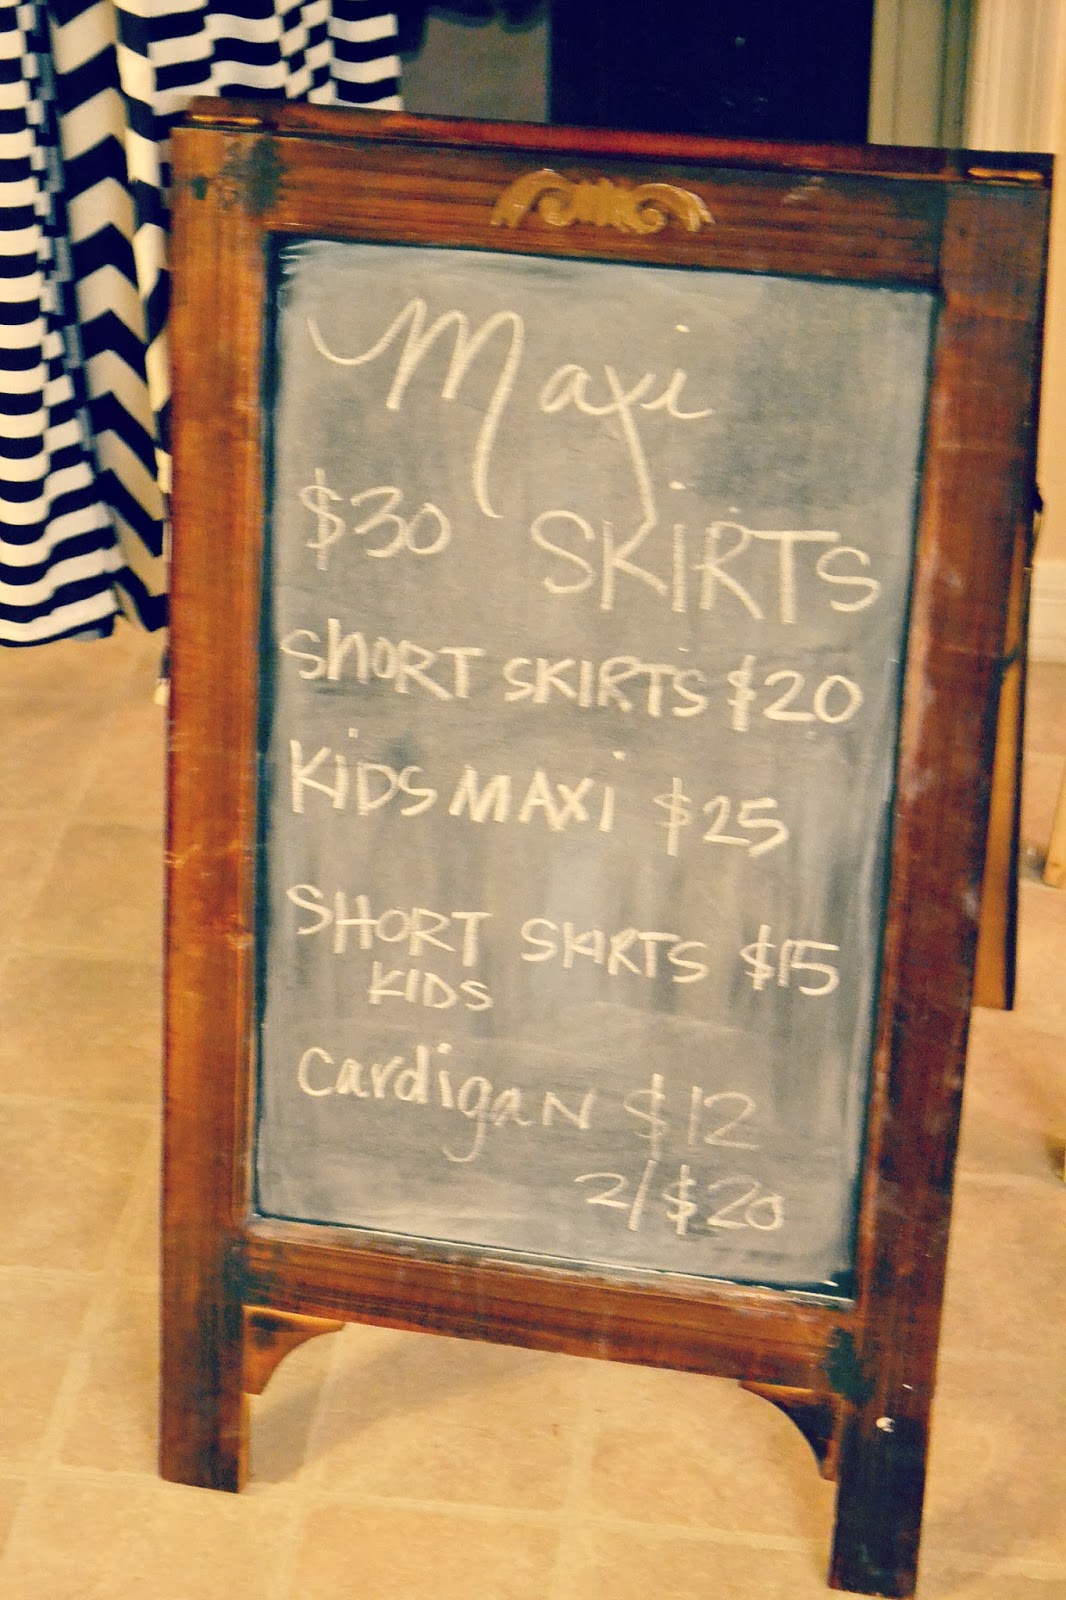 Maxi
$30 SKiRTS
ShORT SKIRTS $20
KiDS MAXi $25
SHORT SKIRTS $15
KIDS
cardigaN $12
2/$20